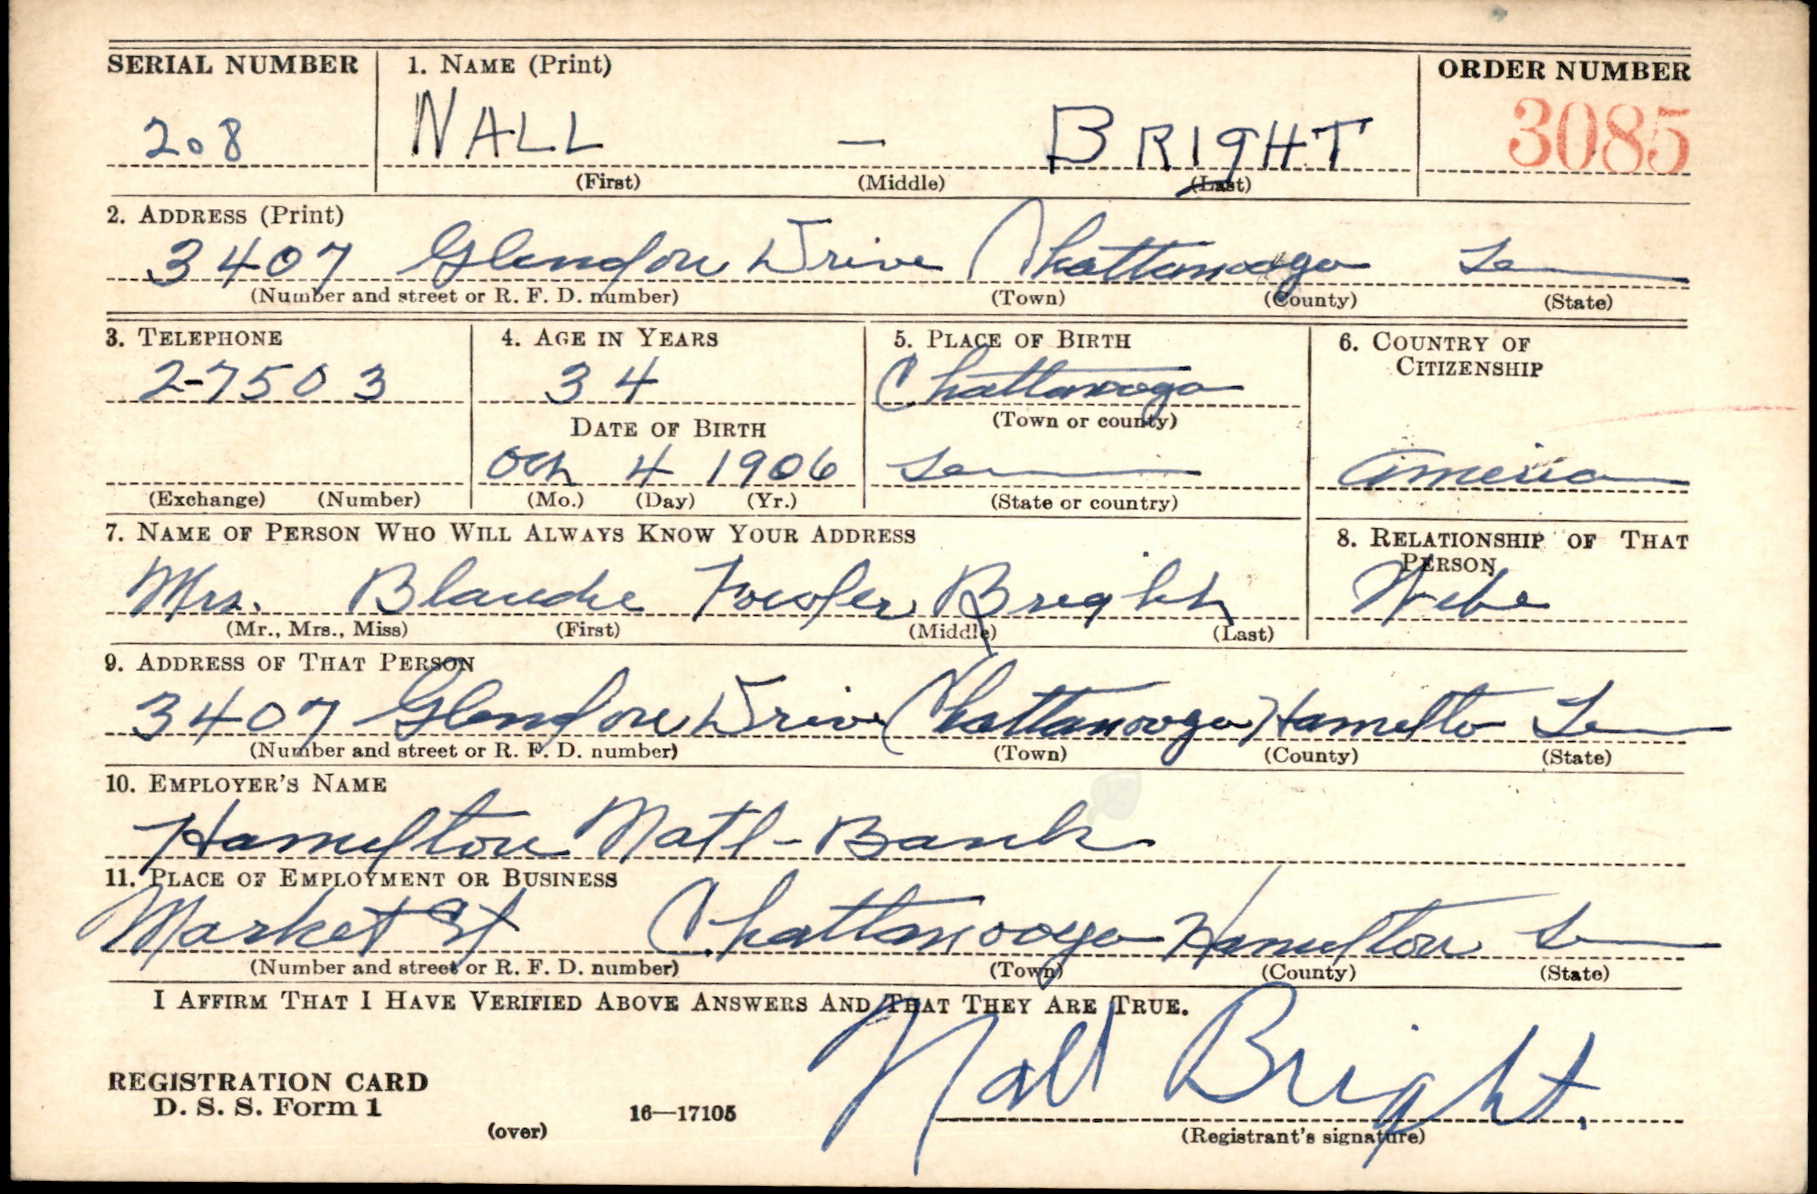 SERIAL NUMBER 1. NAME (Print) ORDER NUMBER
208 NALL — BRIGHT 3085
(First) (Middle) (Last)
2. ADDRESS (Print)
3407 Glendon Drive Chattanooga Ten
(Number and street or R. F. D. number) (Town) (County) (State)
3. TELEPHONE 4. AGE IN YEARS 5. PLACE OF BIRTH 6. COUNTRY OF CITIZENSHIP
2-7503 34 Chattanooga
(Town or county)
DATE OF BIRTH
Oct 4 1906 Ten America
(Exchange) (Number) (Mo.) (Day) (Yr.) (State or country)
7. NAME OF PERSON WHO WILL ALWAYS KNOW YOUR ADDRESS 8. RELATIONSHIP OF THAT PERSON
Mrs. Blanche Fowler Bright Wife
(Mr., Mrs., Miss) (First) (Middle) (Last)
9. ADDRESS OF THAT PERSON
3407 Glendon Drive Chattanooga Hamilto Ten
(Number and street or R. F. D. number) (Town) (County) (State)
10. EMPLOYER'S NAME
Hamilton Natl-Bank
11. PLACE OF EMPLOYMENT OR BUSINESS
Market St Chattanooga Hamilton Ten
(Number and street or R. F. D. number) (Town) (County) (State)
I AFFIRM THAT I HAVE VERIFIED ABOVE ANSWERS AND THAT THEY ARE TRUE.
Nall Bright.
REGISTRATION CARD
D. S. S. Form 1
(over) 16—17105 (Registrant's signature)